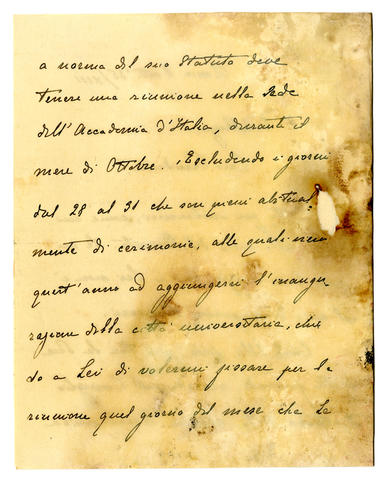 a norma del suo Statuto deve
tenere una riunione nella Sede
dell'Accademia d'Italia, durante il
mese di Ottobre. Escludendo i giorni
dal 28 al 31 che son pieni abitual
mente di cerimonie, alle quali
quest'anno ad aggiungersi l'inaugu
razione della città universitaria, chie
do a Lei di volermi fissare per la
riunione quel giorno del mese che Le